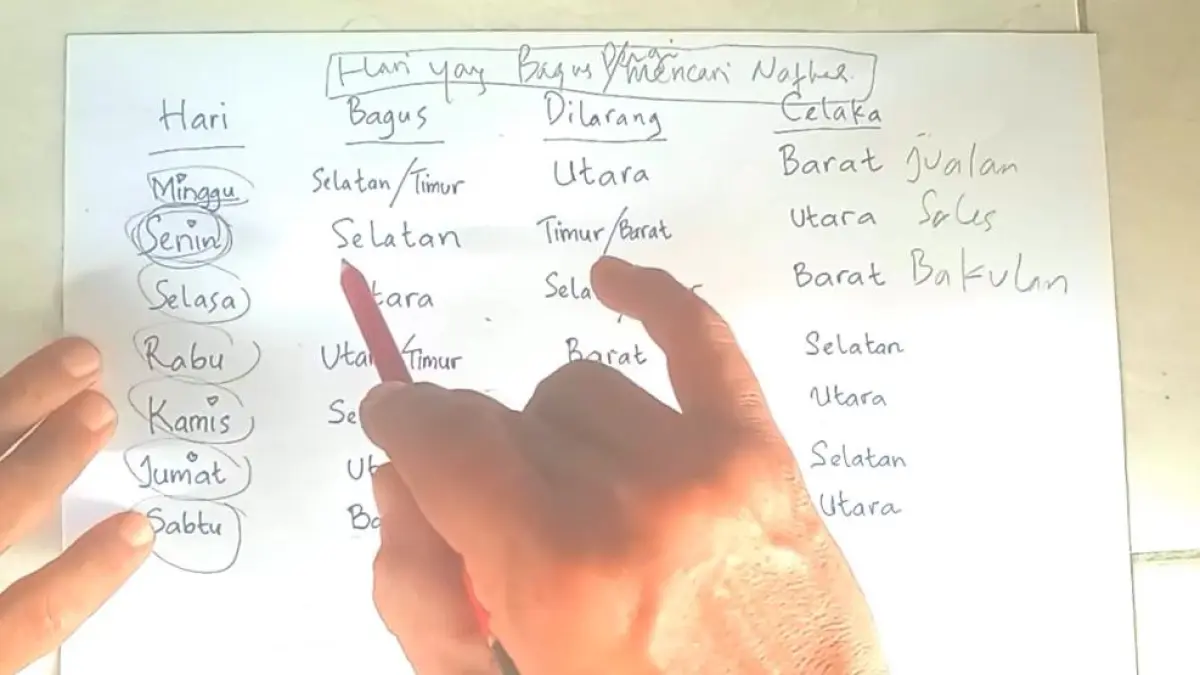 Hari yang Bagus Pergi/mencari Nafkah.
Hari Bagus Dilarang Celaka
Minggu Selatan/Timur Utara Barat Jualan
Senin Selatan Timur/Barat Utara Sales
Selasa Barat Bakulan
Rabu /Timur Barat Selatan
Kamis Utara
Jumat Selatan
Sabtu Utara